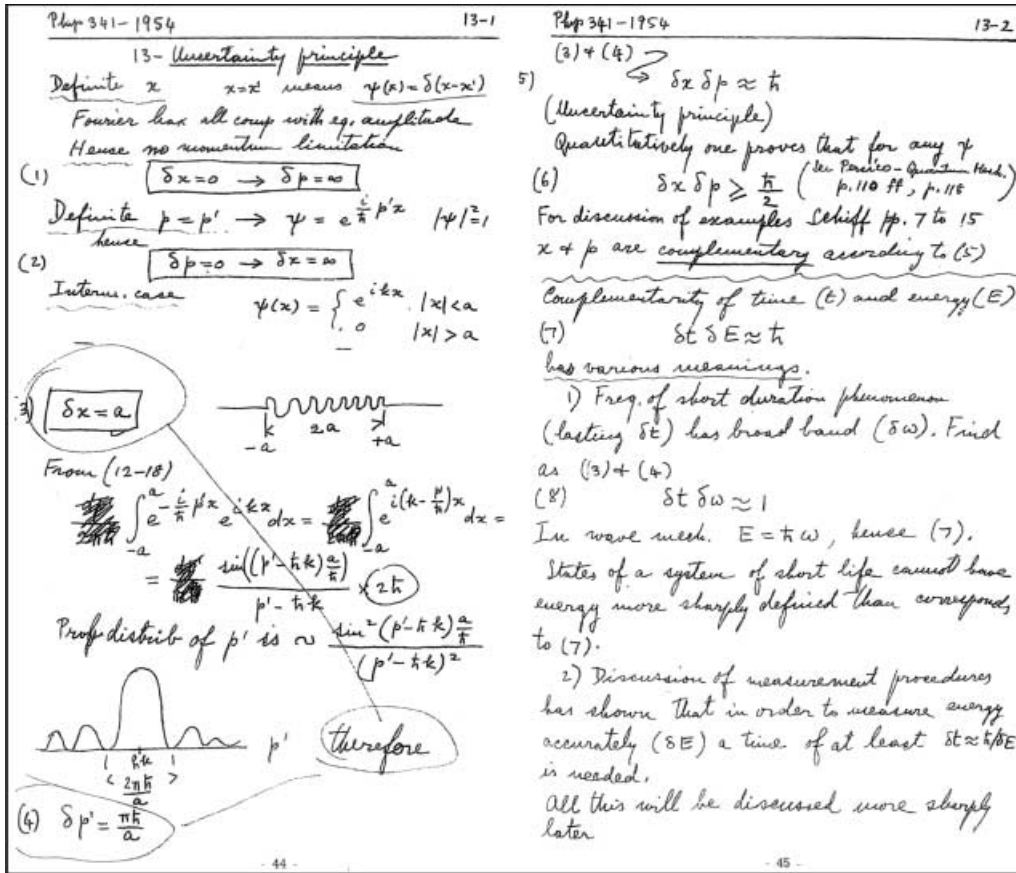 Phys 341-1954 13-1
13- Uncertainty principle
Definite x x=x' means ψ(x)=δ(x-x')
Fourier has all comp with eq. amplitude
Hence no momentum limitation
(1) δx=0 → δp=∞
Definite p=p' → ψ = e^{\frac{i}{ħ}p'x} |ψ|²=1
hence
(2) δp=0 → δx=∞
Interm. case ψ(x) = { e^{ikx} |x|<a
0 |x|>a
3) δx=a
-a 2a +a
From (12-18)
∫_{-a}^{a} e^{-\frac{i}{ħ}p'x} e^{ikx} dx = ∫_{-a}^{a} e^{i(k-\frac{p'}{ħ})x} dx =
= \frac{sin((p'-ħk)\frac{a}{ħ})}{p'-ħk} × 2ħ
Prob distrib of p' is ~ \frac{sin²(p'-ħk)\frac{a}{ħ}}{(p'-ħk)²}
p' therefore
ħk
< \frac{2πħ}{a} >
(4) δp' = \frac{πħ}{a}
- 44 -
Phys 341-1954 13-2
(3)+(4)
5) → δx δp ≈ ħ
(Uncertainty principle)
Quantitatively one proves that for any ψ
(6) δx δp ≥ \frac{ħ}{2} (See Persico-Quantum Mech.
p. 110 ff, p. 118
For discussion of examples Schiff pp. 7 to 15
x + p are complementary according to (5)
Complementarity of time (t) and energy (E)
(7) δt δE ≈ ħ
has various meanings.
1) Freq. of short duration phenomenon
(lasting δt) has broad band (δω). Find
as ((3)+(4)
(8) δt δω ≈ 1
In wave mech. E = ħω, hence (7).
States of a system of short life cannot have
energy more sharply defined than corresponds
to (7).
2) Discussion of measurement procedures
has shown that in order to measure energy
accurately (δE) a time of at least δt≈ħ/δE
is needed.
All this will be discussed more sharply
later
- 45 -